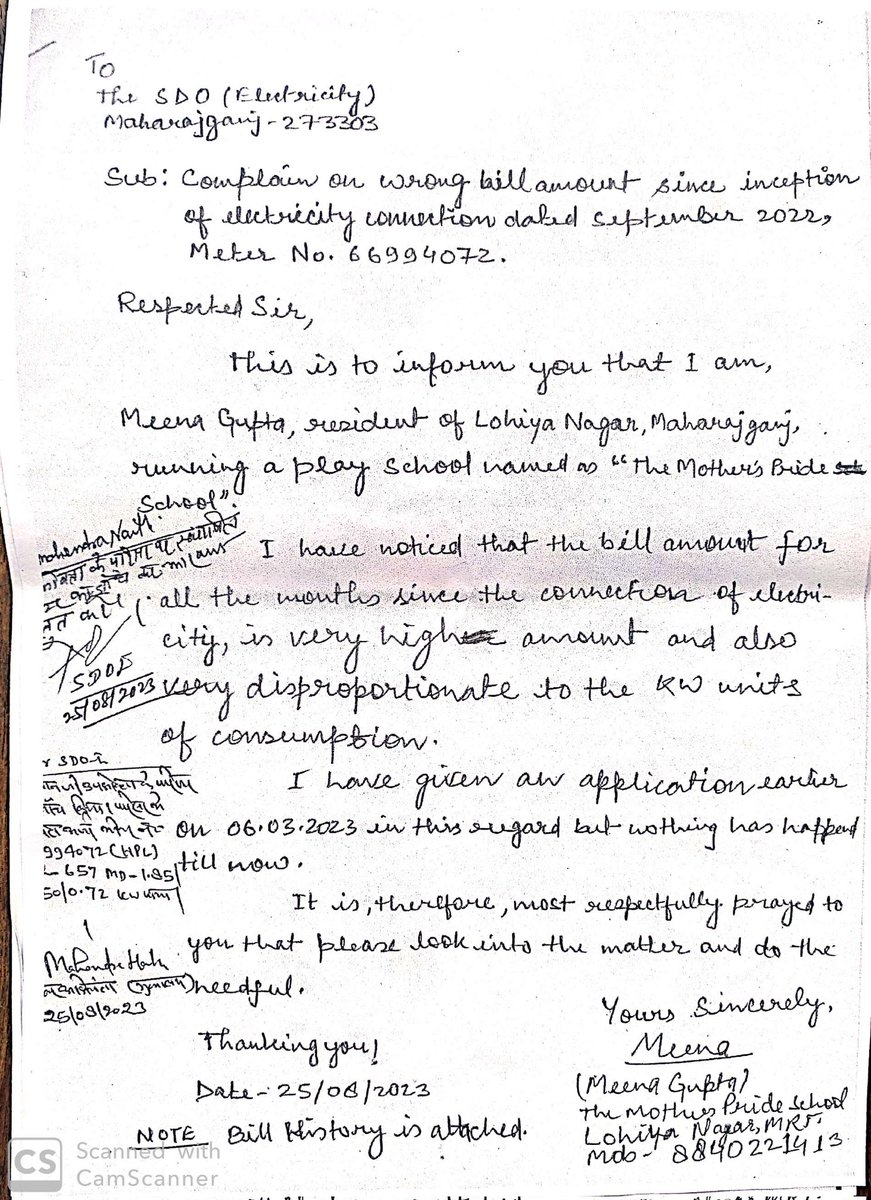 To
The SDO (Electricity)
Maharajganj - 273303
Sub: Complain on wrong bill amount since inception
of electricity connection dated September 2022,
Meter No. 66994072.
Respected Sir,
This is to inform you that I am,
Meena Gupta, resident of Lohiya Nagar, Maharajganj,
running a play school named as "The Mother's Pride
School".
I have noticed that the bill amount for
all the months since the connection of electri-
city, is very high amount and also
very disproportionate to the KW units
of consumption.
I have given an application earlier
on 06.03.2023 in this regard but nothing has happend
till now.
It is, therefore, most respectfully prayed to
you that please look into the matter and do the
needful.
Thanking you!
Date - 25/08/2023
NOTE Bill History is attached.
Yours Sincerely,
Meena
(Meena Gupta)
The Mothers Pride School
Lohiya Nagar, MRJ.
Mob - 8840221413
Mahendra Nath
SDOE
25/08/2023
SDO
994072 (HPL)
657 MD - 1.85
50/0.72 KW
25/08/2023
CS Scanned with
CamScanner